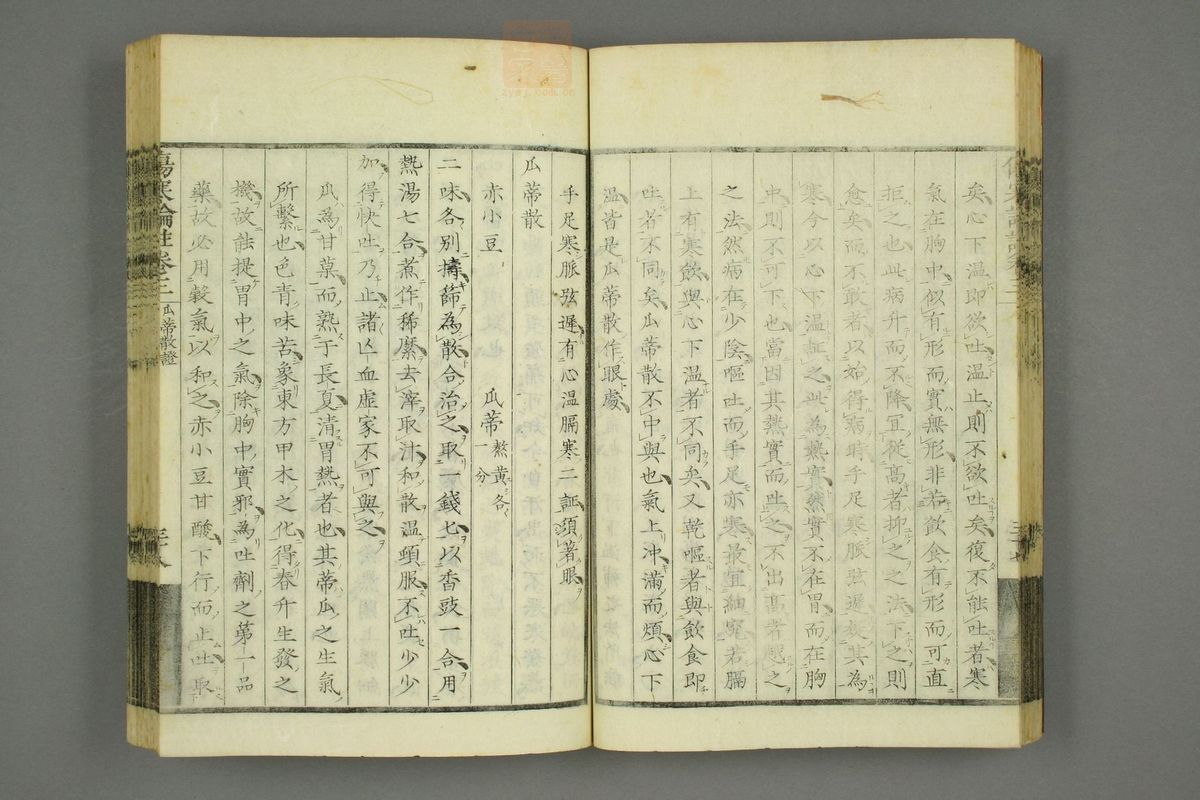 矣心下温即欲吐温止則不欲吐矣復不能吐者寒
氣在胸中似有形而實無形非若飲食有形而可直
拒之也此病升而不降宜從高者抑之之法下之則
愈矣而不敢者以始得病時手足寒脈弦遲
寒今以心下温証之此為熱實然實不在胃而在胸
中則不可下也當因其熱實而吐之不出高者越之
之法然病在少陰嘔吐而手足亦寒最宜細究若膈
上有寒飲與心下温者不同矣又乾嘔者與飲食即
吐者不同矣瓜蒂散不中與也氣上冲滿而煩心下
温皆是瓜蒂散作眼處
手足寒脈弦遲有心温膈寒二証須著眼
瓜蒂散
赤小豆 瓜蒂熬黃各一分
二味各別擣篩為散合治之取一錢匕以香豉一合用
熱湯七合煮作稀糜去滓取汁和散温頓服不吐少少
加得快吐乃止諸亡血虛家不可與之
瓜為甘菓而熟于長夏清胃熱者也其蒂瓜之生氣
所繫也色青味苦象東方甲木之化得春升生發之
機故能提胃中之氣除胸中實邪為吐劑之第一品
藥故必用穀氣以和之赤小豆甘酸下行而止吐取
傷寒論註卷三 瓜蒂散證